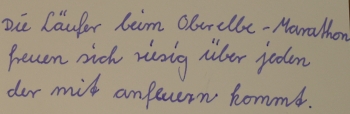 Die Läufer beim Oberelbe-Marathon
freuen sich riesig über jeden
der mit anfeuern kommt.